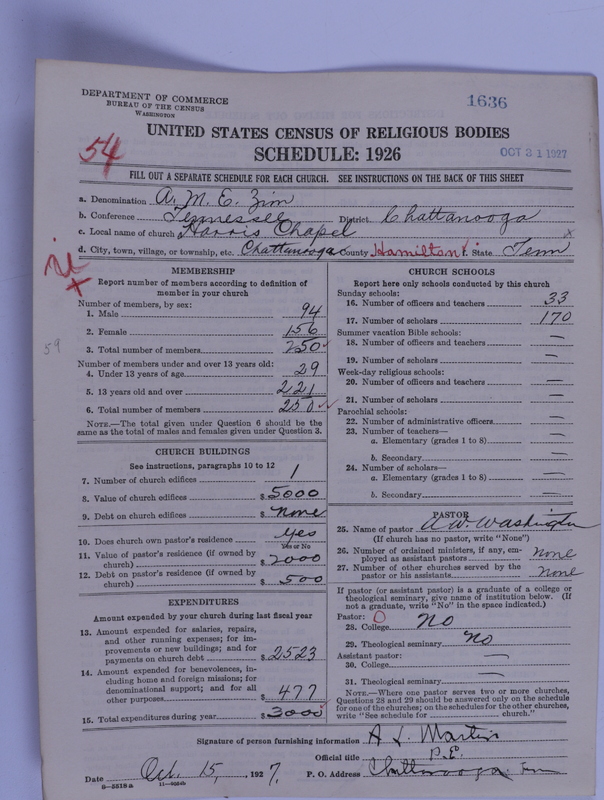 DEPARTMENT OF COMMERCE
BUREAU OF THE CENSUS
WASHINGTON
1636
UNITED STATES CENSUS OF RELIGIOUS BODIES
SCHEDULE: 1926
OCT 31 1927
54
FILL OUT A SEPARATE SCHEDULE FOR EACH CHURCH. SEE INSTRUCTIONS ON THE BACK OF THIS SHEET
a. Denomination A. M. E. Zion
b. Conference Tennessee District Chattanooga
c. Local name of church Harris Chapel x
d. City, town, village, or township, etc. Chattanooga County Hamilton State Tenn
MEMBERSHIP
Report number of members according to definition of
member in your church
Number of members, by sex:
1. Male 94
2. Female 156
3. Total number of members 250
59
Number of members under and over 13 years old:
4. Under 13 years of age 29
5. 13 years old and over 221
6. Total number of members 250
NOTE.—The total given under Question 6 should be
same as the total of males and females given under Question 3.
CHURCH BUILDINGS
See instructions, paragraphs 10 to 12
7. Number of church edifices 1
8. Value of church edifices $ 5000
9. Debt on church edifices $ none
10. Does church own pastor's residence yes
Yes or No
11. Value of pastor's residence (if owned by
church) $ 2000
12. Debt on pastor's residence (if owned by
church) $ 500
EXPENDITURES
Amount expended by your church during last fiscal year
13. Amount expended for salaries, repairs,
and other running expenses; for im-
provements or new buildings; and for
payments on church debt $ 2523
14. Amount expended for benevolences, in-
cluding home and foreign missions; for
denominational support; and for all
other purposes $ 477
15. Total expenditures during year $ 3000
CHURCH SCHOOLS
Report here only schools conducted by this church
Sunday schools:
16. Number of officers and teachers 33
17. Number of scholars 170
Summer vacation Bible schools:
18. Number of officers and teachers —
19. Number of scholars —
Week-day religious schools:
20. Number of officers and teachers —
21. Number of scholars —
Parochial schools:
22. Number of administrative officers —
23. Number of teachers—
a. Elementary (grades 1 to 8) —
b. Secondary —
24. Number of scholars—
a. Elementary (grades 1 to 8) —
b. Secondary —
PASTOR
25. Name of pastor A W. Washington
(If church has no pastor, write "None")
26. Number of ordained ministers, if any, em-
ployed as assistant pastors none
27. Number of other churches served by the
pastor or his assistants none
If pastor (or assistant pastor) is a graduate of a college or
theological seminary, give name of institution below. (If
not a graduate, write "No" in the space indicated.)
Pastor: O
28. College No
29. Theological seminary No
Assistant pastor:
30. College —
31. Theological seminary —
NOTE.—Where one pastor serves two or more churches,
Questions 28 and 29 should be answered only on the schedule
for one of the churches; on the schedules for the other churches,
write "See schedule for church."
Signature of person furnishing information A L. Martin
Official title P. E.
Date Oct. 15, 1927. P. O. Address Chattanooga Tenn
8-5518a